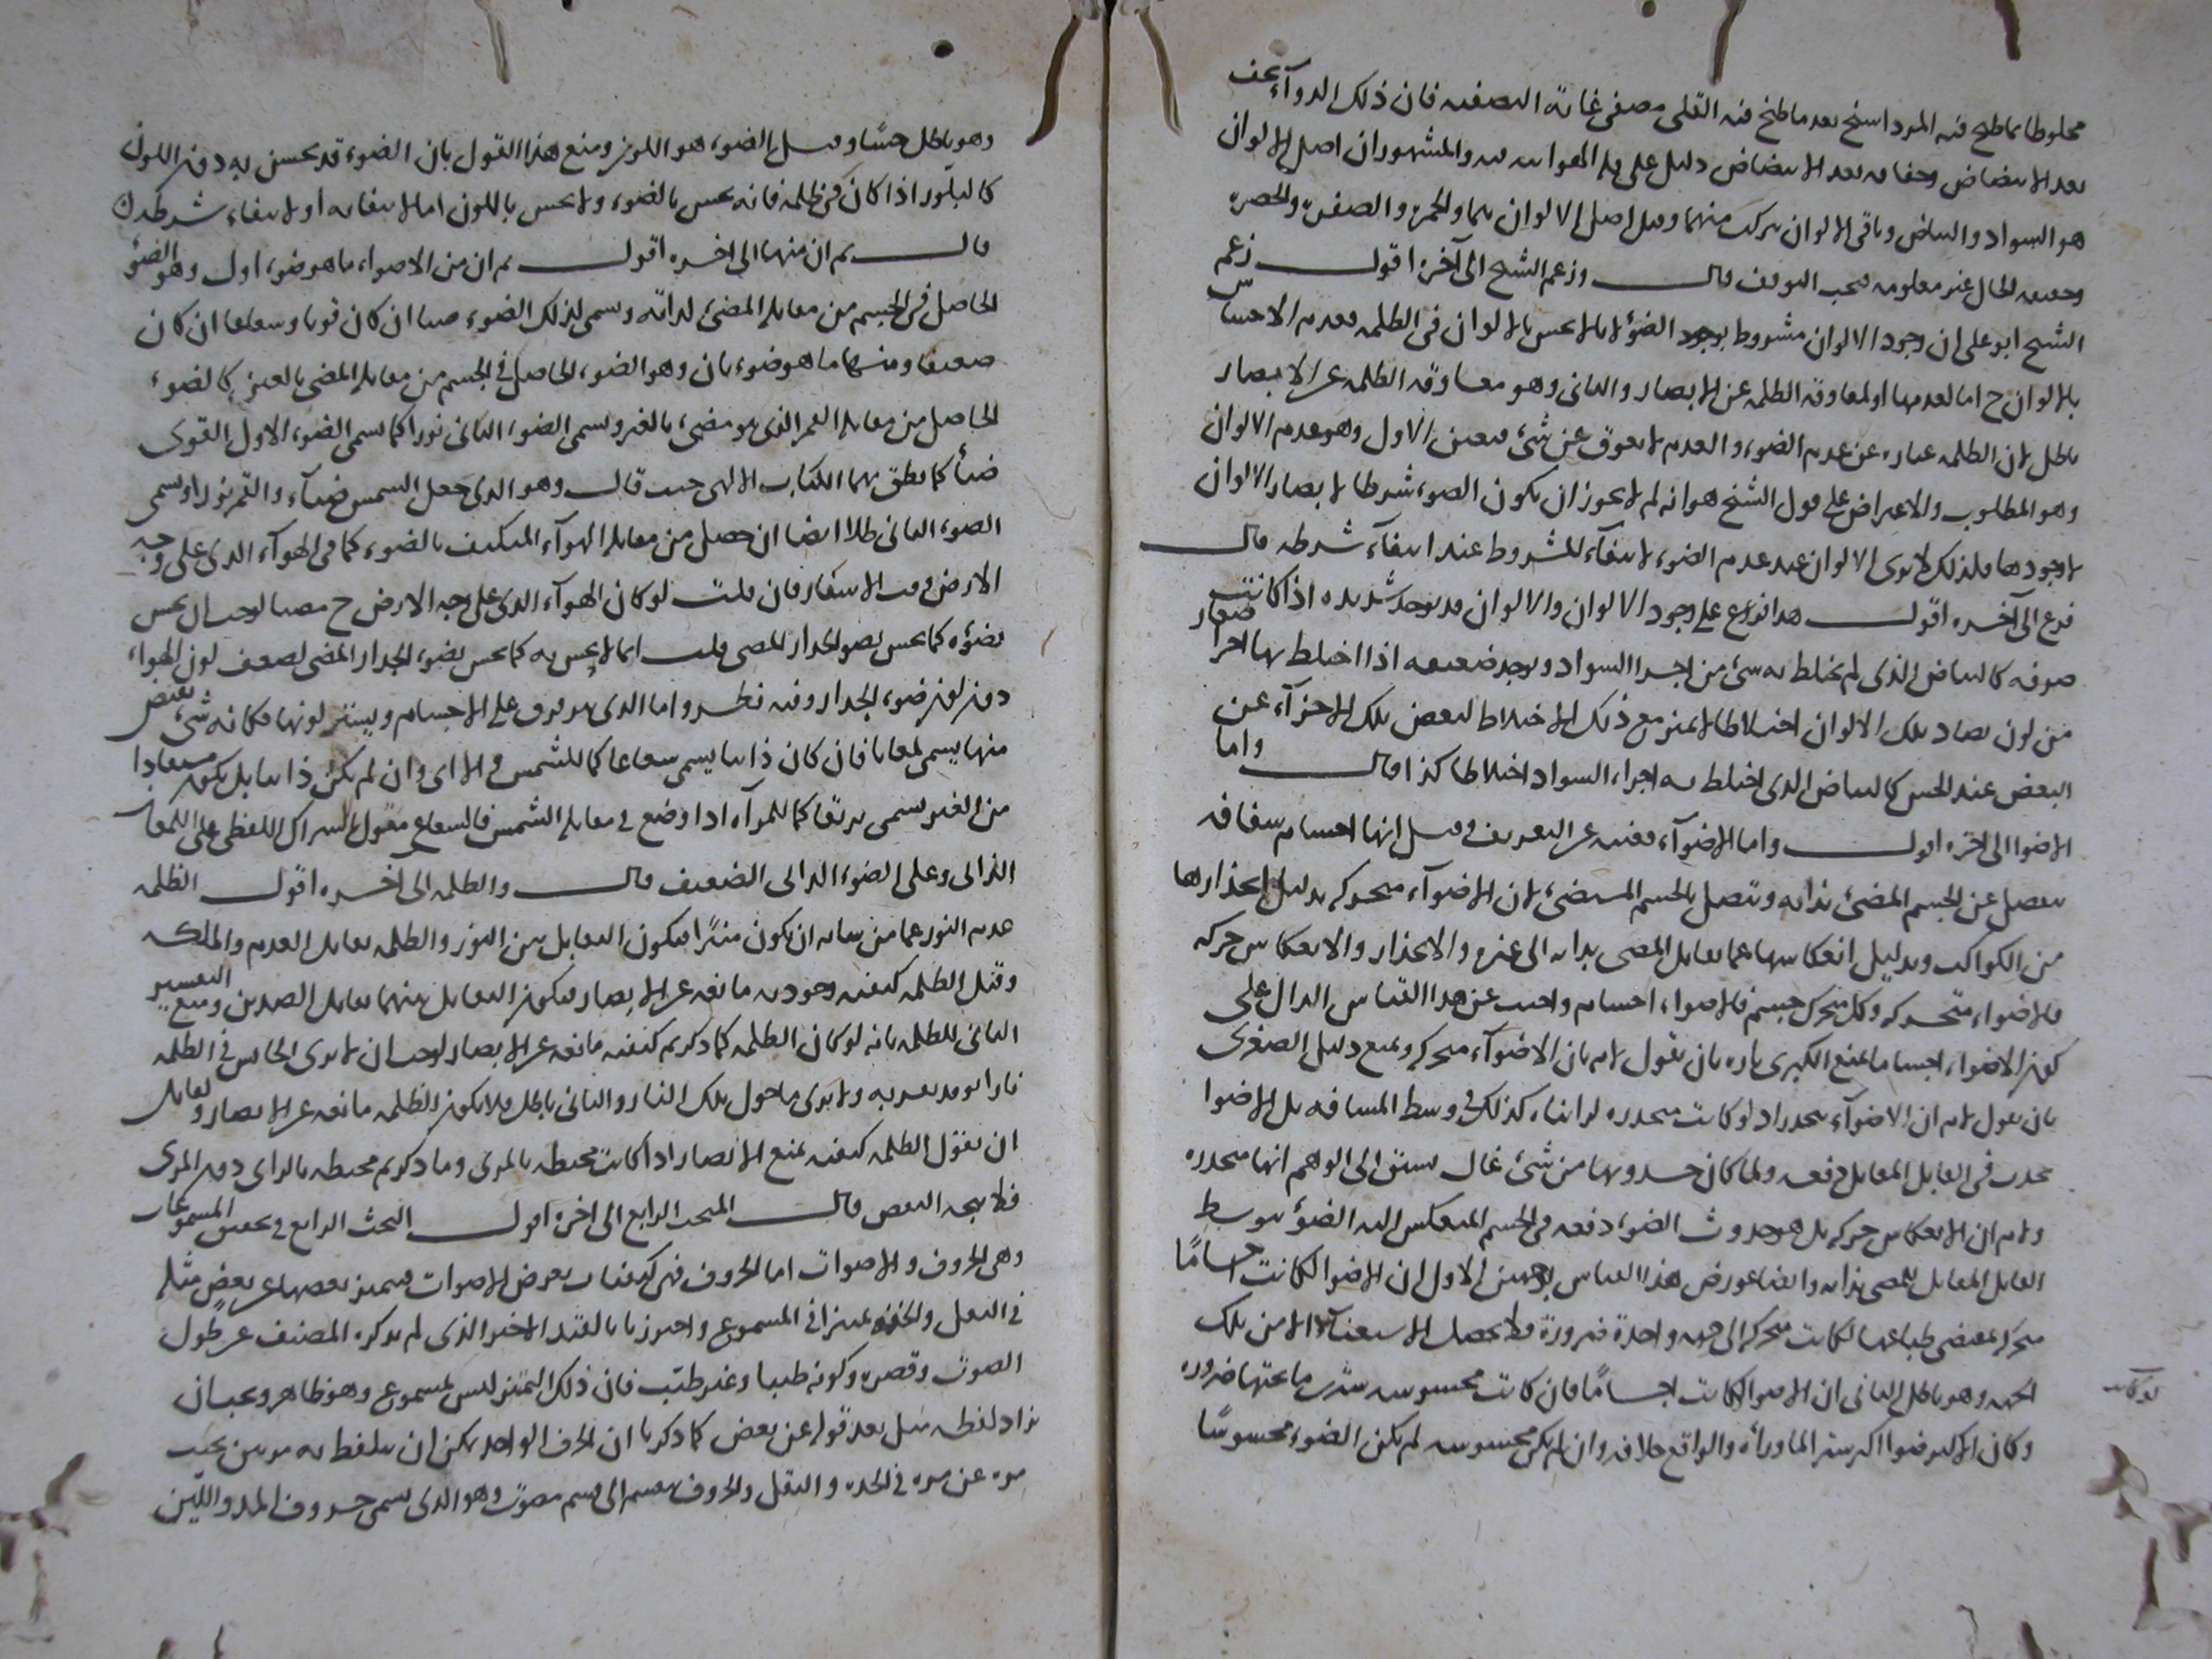 مخلوطا بما طبخ فيه المرداسنج بعد ما طبخ فيه القلى مصفى غاية التصفيه فان ذلك الدوآء يجف
بعد الابيضاض وجفافه بعد الابيضاض دليل على قلة الهوائيه فيه والمشهور ان اصل الالوان
هو السواد والبياض وباقى الالوان يتركب منهما وقيل اصل الالوان هما والحمرة والصفرة والخضرة
وحقيقه الحال غير معلومه فيجب التوقف قال وزعم الشيخ الى آخره اقول زعم
الشيخ ابو على ان وجود الالوان مشروط بوجود الضوء لانا لا نحس بالالوان فى الظلمه فعدم الاحساس
بالالوان ح اما لعدمها او لمعاوقه الظلمه عن الابصار والثانى وهو معاوقه الظلمه عن الابصار
باطل لان الظلمه عباره عن عدم الضوء والعدم لا يعوق عن شئ فتعين الاول وهو عدم الالوان
وهو المطلوب والاعتراض على قول الشيخ هو انه لم لا يجوز ان يكون الضوء شرطا لابصار الالوان
لا لوجودها فلذلك لا نرى الالوان عند عدم الضوء لانتفآء المشروط عند انتفآء شرطه قال
فرع الى آخره اقول هذا فرع على وجود الالوان والالوان قد توجد شديده اذا كانت
صرفه كالبياض الذى لم يختلط به شئ من اجزاء السواد وتوجد ضعيفه اذا اختلط بها اجزاء صغار
من لون يضاد تلك الالوان اختلاطا لا يتميز مع ذلك الاختلاط لبعض تلك الاجزآء عن
البعض عند الحس كالبياض الذى اختلط به اجزاء السواد اختلاطا كذا قال واما
الاضوا الى اخره اقول واما الاضوآء فغنيه عن التعريف وقيل انها اجسام شفافه
تنفصل عن الجسم المضئ بذاته وتتصل بالجسم المستضئ لان الاضوآء متحركه بدليل انحدارها
من الكواكب وبدليل انعكاسها عما يقابل المضى بذاته الى غيره والانحدار والانعكاس حركه
فالاضواء متحركه وكل متحرك جسم فالاضواء اجسام واجيب عن هذا القياس الدال على
كون الاضواء اجساما بمنع الكبرى تاره بان نقول لانم بان الاضوآء متحركه وبمنع دليل الصغرى
بان نقول لانم ان الاضوآء منحدره اذ لو كانت منحدره لرايناه كذلك فى وسط المسافه بل الاضوا
تحدث فى القابل المقابل دفعه ولما كان حدوثها من شئ عال سبق الى الوهم انها منحدره
ولانم ان الانعكاس حركه بل هو حدوث الضوء دفعه فى الجسم المنعكس اليه الضوء بتوسط
القابل المقابل للمضى بذاته وايضا عورض هذا القياس بوجهين الاول ان الاضوا لو كانت اجسامًا
متحركه بمقتضى طباعها لكانت متحركه الى جهه واحدة ضرورة فلا تحصل الاستضآءة الا من تلك
الجهه وهو باطل الثانى ان الاضوا لو كانت اجسامًا فان كانت محسوسه سترت ما تحتها ضروره
لو كانت
وكان الاكثر ضوا اكثر سترا لما ورآءه والواقع خلافه وان لم يكن محسوسه لم يكن الضوء محسوسًا
وهو باطل حسًا وقيل الضوء هو اللون ومنع هذا القول بان الضوء قد يحس به دون اللون
كالبلّور اذا كان فى ظلمه فانه يحس بالضوء ولا يحس باللون اما لانتفائه او لانتفاء شرطه
قال ثم ان منها الى اخره اقول ثم ان من الاضواء ما هو ضوء اول وهو الضوء
الحاصل فى الجسم من مقابله المضئ لذاته ويسمى لذلك الضوء ضياء ان كان قويا وشعاعا ان كان
ضعيفا ومنها ما هو ضوء ثان وهو الضوء الحاصل فى الجسم من مقابله المضى بالغير كالضوء
الحاصل من مقابله القمر الذى هو مضىء بالغير ويسمى الضوء الثانى نورا كما يسمى الضوء الاول القوى
ضيآء كما نطق بهما الكتاب الالهى حيث قال وهو الذى جعل الشمس ضيآء والقمر نورا ويسمى
الضوء الثانى ظلا ايضا ان حصل من مقابله الهوآء المتكيف بالضوء كما فى الهوآء الذى على وجه
الارض وقت الاسفار فان قلت لو كان الهوآء الذى على وجه الارض ح مضيا لوجب ان يحس
بضوءه كما يحس بضوء الجدار المضى قلت انما لا يحس به كما يحس بضوء الجدار المضى لضعف لون الهواء
دون لون ضوء الجدار وفيه نظر واما الذى يترقرق على الاجسام ويستر لونها فكانه شئ يفيض
منها يسمى لمعانا فان كان ذاتيا يسمى شعاعا كما للشمس وان لم يكن ذاتيا بل يكون مستفادا
من الغير يسمى بريقا كما للمرآه اذا وضع فى مقابله الشمس فالشعاع مقول باشتراك اللفظ على اللمعان
الذاتى وعلى الضوء الذاتى الضعيف قال والظلمه الى آخره اقول الظلمه
عدم النور عما من شانه ان يكون منيرا فيكون التقابل بين النور والظلمه تقابل العدم والملكه
وقيل الظلمه كيفيه وجوديه مانعه عن الابصار فيكون التقابل بينهما تقابل الضدين ومنع التفسير
الثانى للظلمه بانه لو كان الظلمه كما ذكرتم كيفيه مانعه عن الابصار لوجب ان لا يرى الجالس فى الظلمه
نارا توقد بقربه ولا يرى ما حول تلك النار والثانى باطل فلا يكون الظلمه مانعه عن الابصار ولقائل
ان يقول الظلمه كيفيه تمنع الابصار اذا كانت محيطه بالمرئى وما ذكرتم محيطه بالرائى دون المرئى
فلا يتجه النقض قال المبحث الرابع الى اخره اقول البحث الرابع فى تحقيق المسموعات
وهى الحروف والاصوات اما الحروف فهى كيفيات تعرض للاصوات فيتميز بعضها عن بعض مثله
فى الثقل والخفه تميزا فى المسموع واحترزنا بالقيد الاخير الذى لم يذكره المصنف عن طول
الصوت وقصره وكونه طيبا وغير طيّب فان ذلك التميز ليس بمسموع وهو ظاهر ويجب ان
يزاد لفظه مثل بعد قوله عن بعض كما ذكرنا ان الحرف الواحد يمكن ان يتلفظ به مرتين يتميز
مره عن مره فى الحده والثقل والحروف تنقسم الى قسم مصوت وهو الذى يسمى حروف المد واللّين